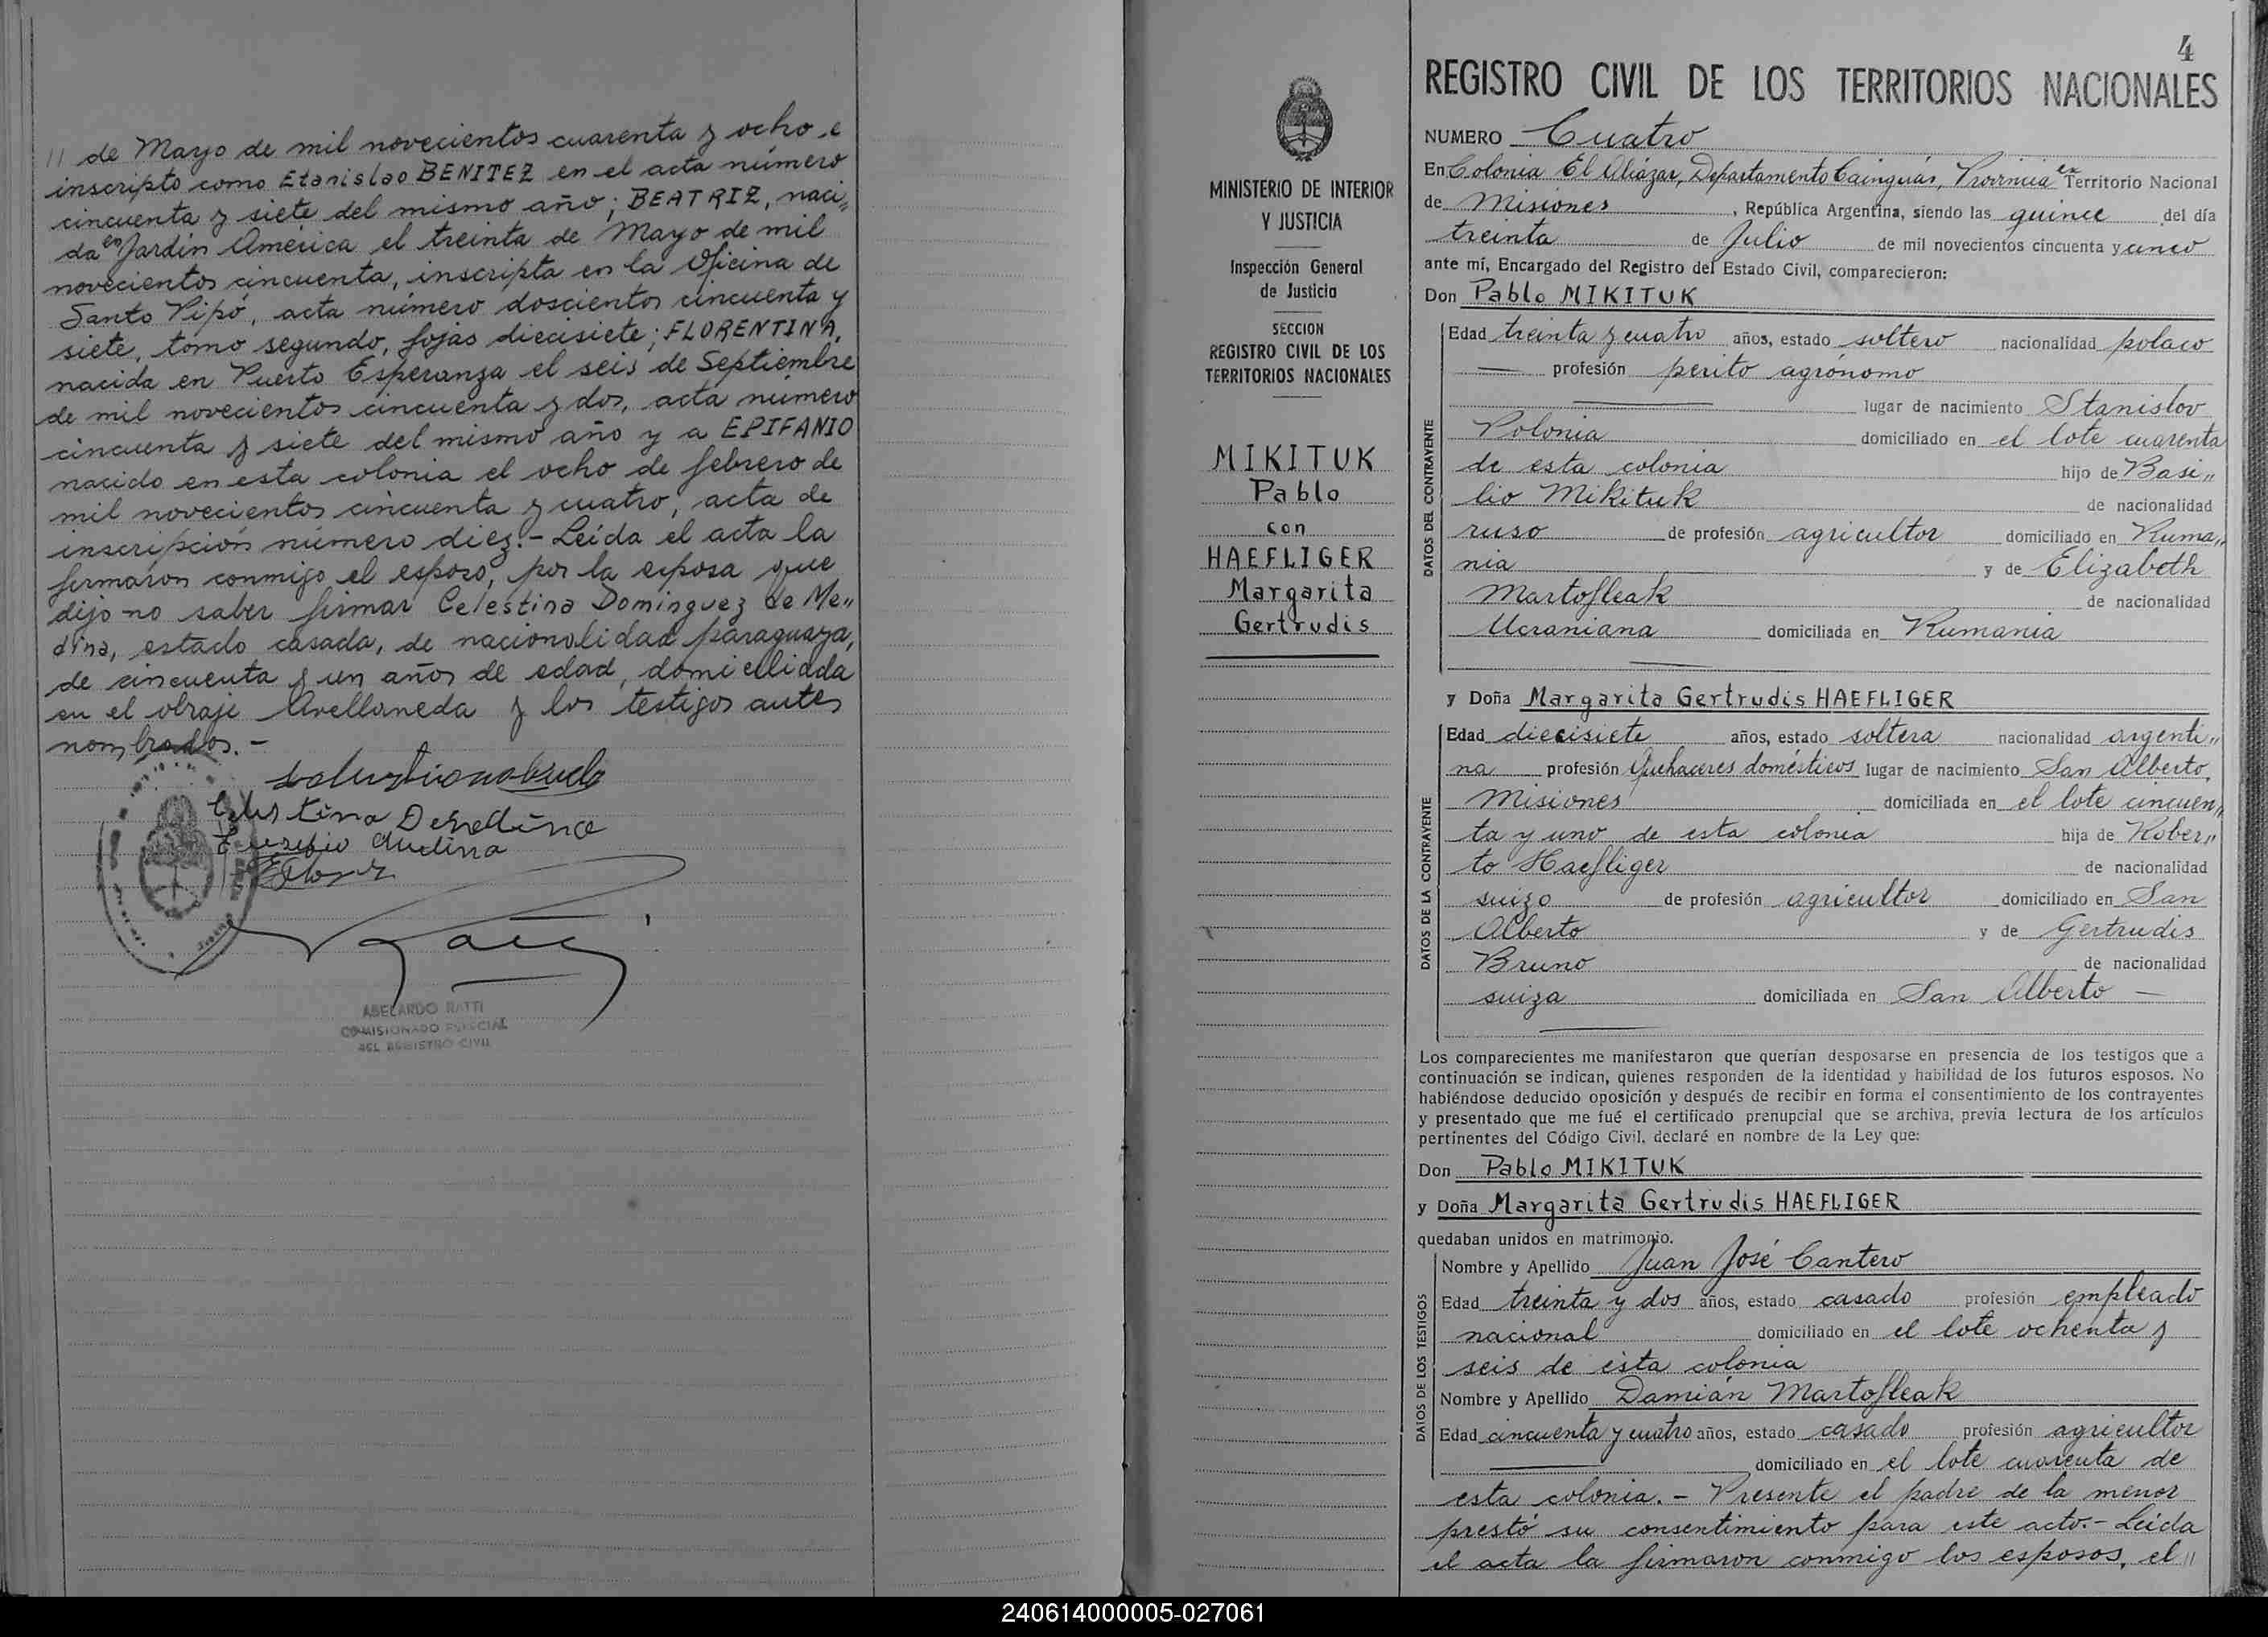 // de Mayo de mil novecientos cuarenta y ocho e
inscripto como Etanislao BENITEZ en el acta número
cincuenta y siete del mismo año; BEATRIZ, naci„
da en Jardín América el treinta de Mayo de mil
novecientos cincuenta, inscripta en la Oficina de
Santo Pipó, acta número doscientos cincuenta y
siete, tomo segundo, fojas diecisiete; FLORENTINA,
nacida en Puerto Esperanza el seis de Septiembre
de mil novecientos cincuenta y dos, acta número
cincuenta y siete del mismo año y a EPIFANIO
nacido en esta colonia el ocho de febrero de
mil novecientos cincuenta y cuatro, acta de
inscripción número diez.- Leída el acta la
firmaron conmigo el esposo, por la esposa que
dijo no saber firmar Celestina Dominguez de Me„
dina, estado casada, de nacionalidad paraguaya,
de cincuenta y un años de edad, domicilliada
en el obraje Avellaneda y los testigos antes
nombrados.-
Celestina De Medina
Medina
ABELARDO RATTI
COMISIONADO ESPECIAL
DEL REGISTRO CIVIL
MINISTERIO DE INTERIOR
Y JUSTICIA
Inspección General
de Justicia
SECCION
REGISTRO CIVIL DE LOS
TERRITORIOS NACIONALES
MIKITUK
Pablo
con
HAEFLIGER
Margarita
Gertrudis
4
REGISTRO CIVIL DE LOS TERRITORIOS NACIONALES
NUMERO Cuatro
En Colonia El Alcázar, Departamento Cainguás, Provincia ex Territorio Nacional
de Misiones, República Argentina, siendo las quince del día
treinta de Julio de mil novecientos cincuenta y cinco
ante mí, Encargado del Registro del Estado Civil, comparecieron:
Don Pablo MIKITUK
DATOS DEL CONTRAYENTE
Edad treinta y cuatro años, estado soltero nacionalidad polaco
— profesión perito agrónomo
lugar de nacimiento Stanislov
Polonia domiciliado en el lote cuarenta
de esta colonia hijo de Basi„
lio Mikituk de nacionalidad
ruso de profesión agricultor domiciliado en Ruma„
nia y de Elizabeth
Martofleak de nacionalidad
Ucraniana domiciliada en Rumania
y Doña Margarita Gertrudis HAEFLIGER
DATOS DE LA CONTRAYENTE
Edad diecisiete años, estado soltera nacionalidad argenti„
na profesión Quehaceres domésticos lugar de nacimiento San Alberto,
Misiones domiciliada en el lote cincuen„
ta y uno de esta colonia hija de Rober„
to Haefliger de nacionalidad
suizo de profesión agricultor domiciliado en San
Alberto y de Gertrudis
Bruno de nacionalidad
suiza domiciliada en San Alberto —
Los comparecientes me manifestaron que querían desposarse en presencia de los testigos que a
continuación se indican, quienes responden de la identidad y habilidad de los futuros esposos. No
habiéndose deducido oposición y después de recibir en forma el consentimiento de los contrayentes
y presentado que me fué el certificado prenupcial que se archiva, previa lectura de los artículos
pertinentes del Código Civil, declaré en nombre de la Ley que:
Don Pablo MIKITUK
y Doña Margarita Gertrudis HAEFLIGER
quedaban unidos en matrimonio.
DATOS DE LOS TESTIGOS
Nombre y Apellido Juan José Cantero
Edad treinta y dos años, estado casado profesión empleado
nacional domiciliado en el lote ochenta y
seis de esta colonia
Nombre y Apellido Damián Martofleak
Edad cincuenta y cuatro años, estado casado profesión agricultor
domiciliado en el lote cuarenta de
esta colonia.- Presente el padre de la menor
prestó su consentimiento para este acto.- Leída
el acta la firmaron conmigo los esposos, el //
240614000005-027061